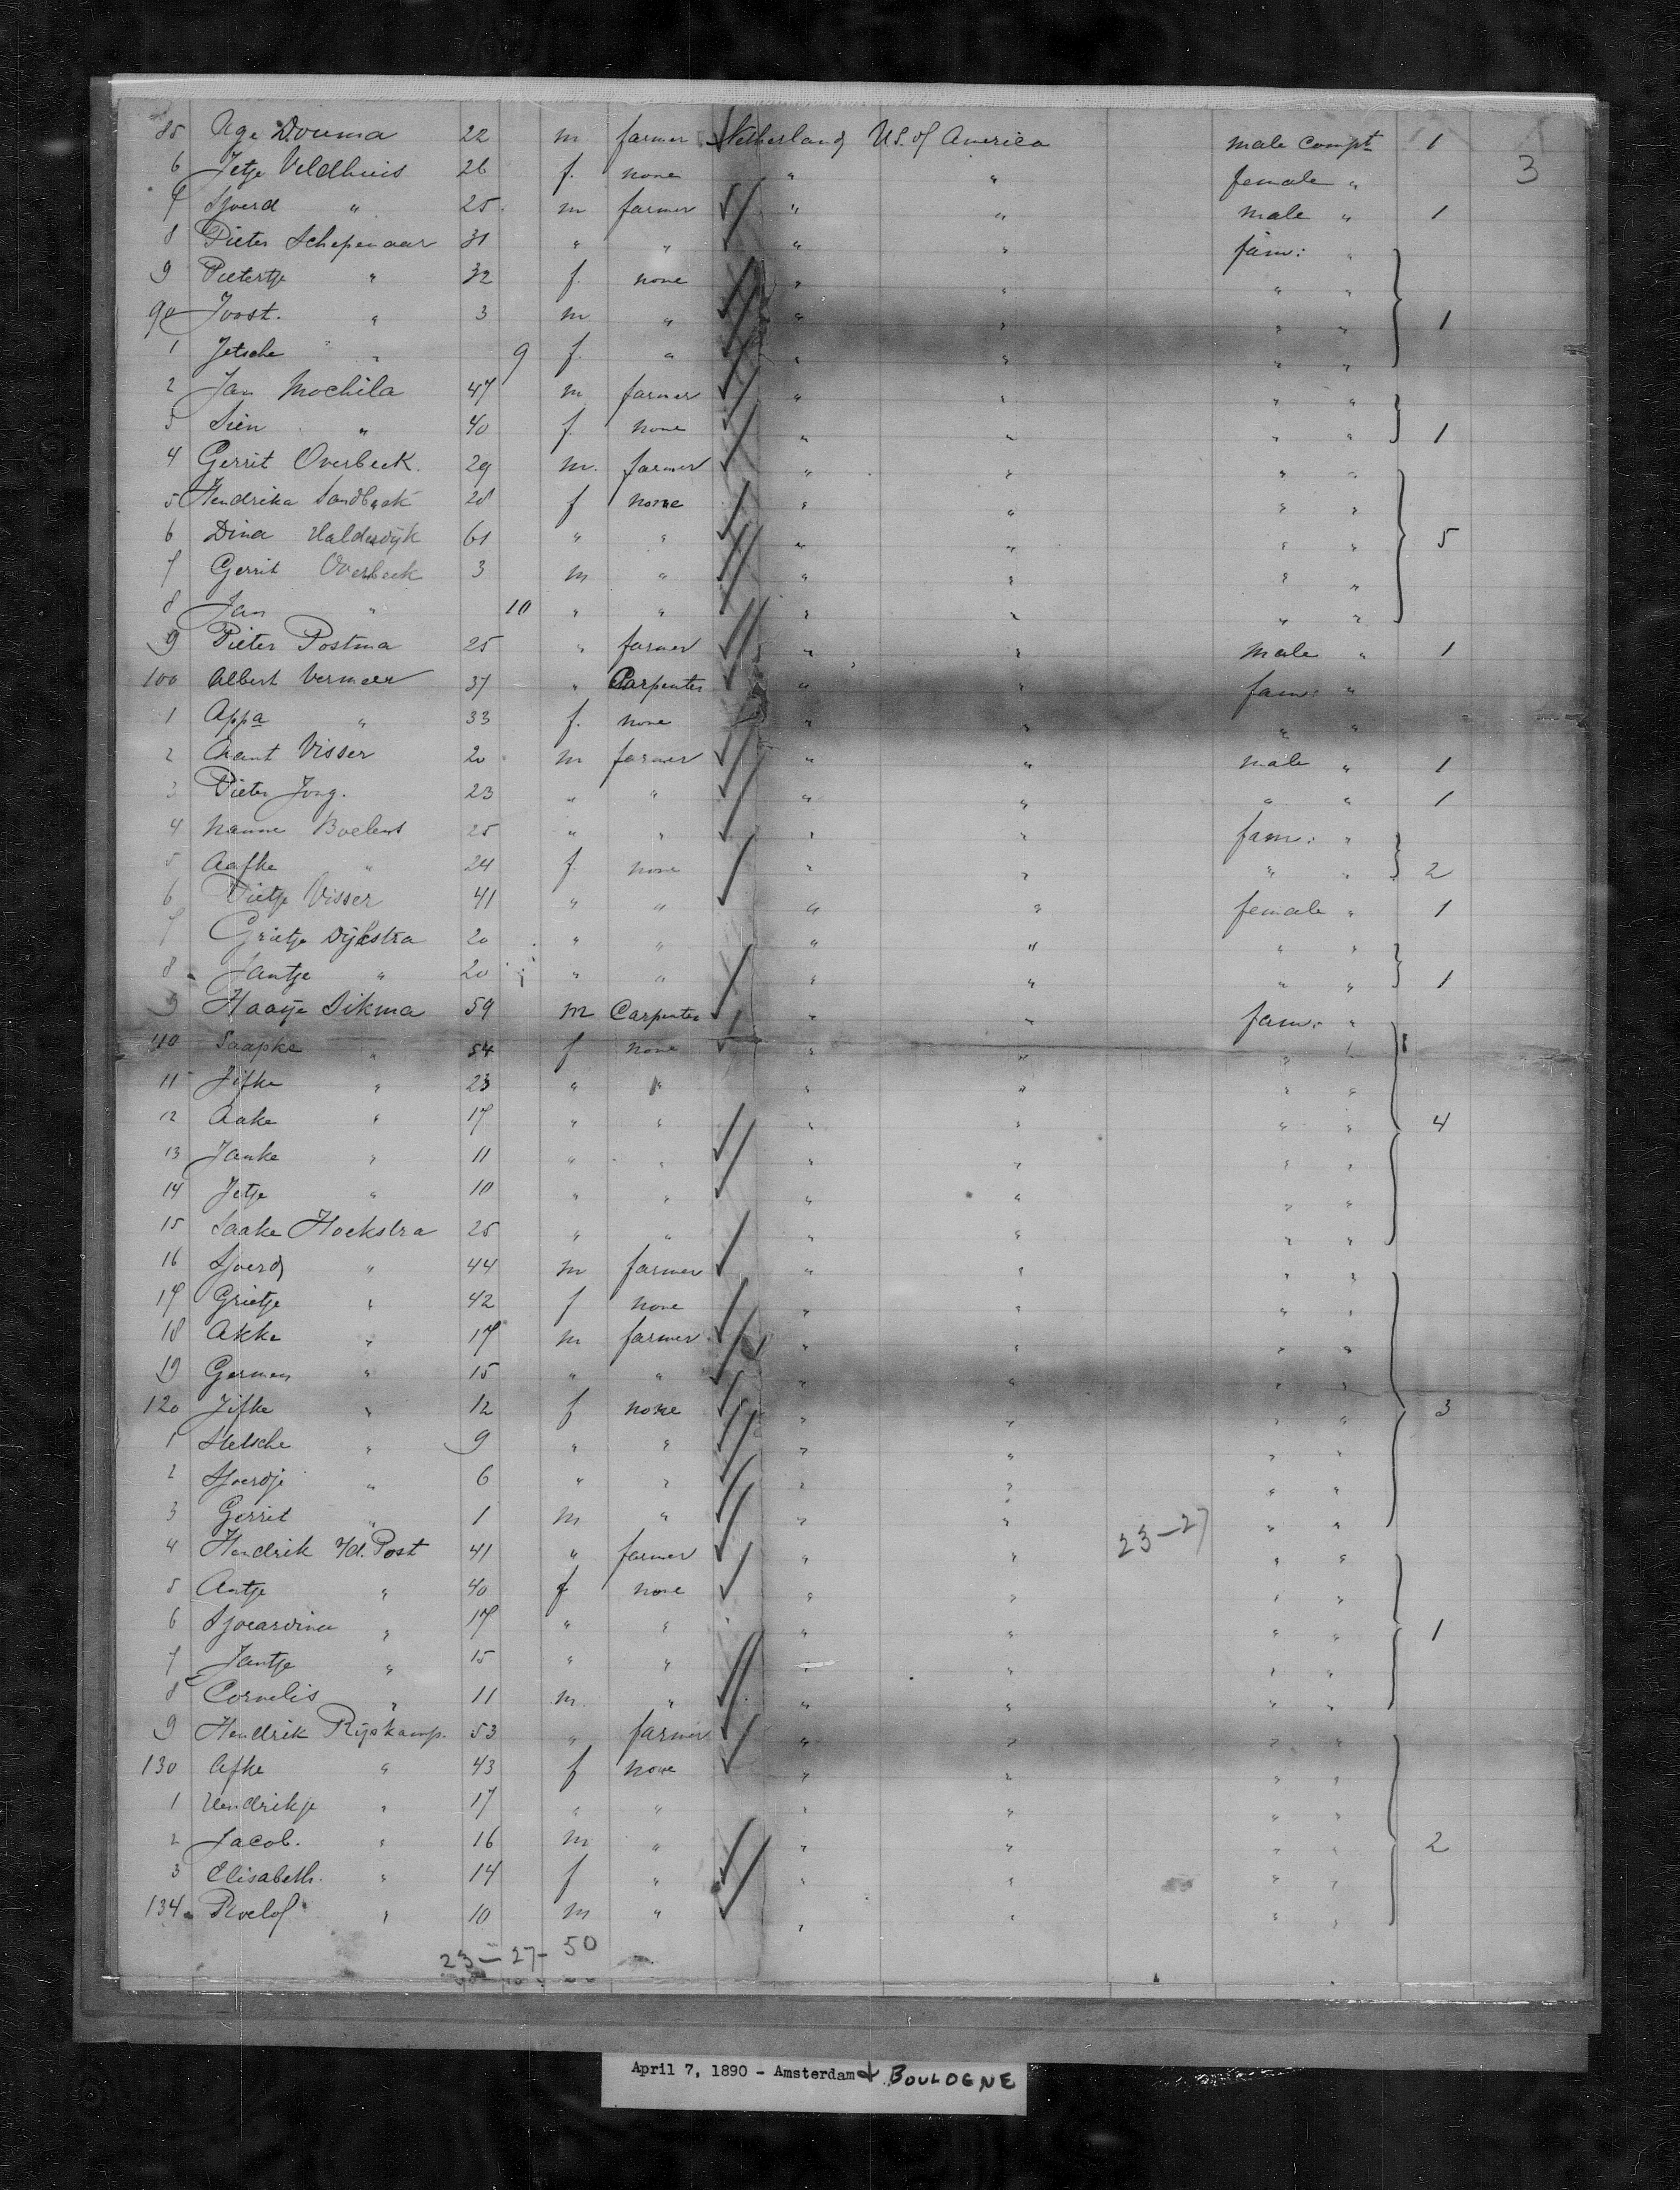 85 Age Douma 22 m farmer Netherland U.S. of America male compt 1
3
6 Jetje Veldhuis 26 f. none " " female "
7 Sjoerd " 25 m farmer " " male " 1
8 Pieter Schepenaar 31 " " " " fam: "
9 Pietertje " 32 f. none " " " "
90 Joost. " 3 m " " " " " 1
1 Jetsche " 9 f. " " " " "
2 Jan Mochila 47 m farmer " " " "
3 Sien " 40 f. none " " " " 1
4 Gerrit Overbeek. 29 m. farmer " " " "
5 Hendrika Sandbeek 28 f none " " " "
6 Dina 61 " " " " " " 5
7 Gerrit Overbeek 3 m " " " " "
8 Jan " 10 " " " " " "
9 Pieter Postma 25 " farmer " " male " 1
100 Albert Vermeer 37 " Carpenter " " fam: "
1 Appa " 33 f. none " " " "
2 Visser 20 m farmer " " male " 1
3 Pieter Jong. 23 " " " " " " 1
4 Nanne Boelens 25 " " " " fam: "
5 Aafke " 24 f. none " " " " 2
6 Pietje Visser 41 " " " " female " 1
7 Grietje Dijkstra 20 " " " " " "
8 Jantje " 20 " " " " " " 1
9 Haaije Sikma 59 m Carpenter " " fam: "
110 Saapke " 54 f none " " " "
11 Jifke " 23 " " " " " "
12 Aake " 17 " " " " " " 4
13 Janke " 11 " " " " " "
14 Jetje " 10 " " " " " "
15 Saake Hoekstra 25 " " " " " "
16 Sjoerd " 44 m farmer " " " "
17 Grietje " 42 f none " " " "
18 Akke " 17 m farmer " " " "
19 Germen " 15 " " " " " "
120 Jifke " 12 f none " " " " 3
1 " 9 " " " " " "
2 Sjoerdje " 6 " " " " " "
3 Gerrit " 1 m " " " " "
23-27
4 Hendrik v/d. Post 41 " farmer " " " "
5 Antje " 40 f none " " " "
6 " 17 " " " " " " 1
7 Jantje " 15 " " " " " "
8 Cornelis " 11 m. " " " " "
9 Hendrik Rijskamp. 53 " farmer " " " "
130 Afke " 43 f none " " " "
1 Hendrikje " 17 " " " " " "
2 Jacob. " 16 m " " " " " 2
3 Elisabeth. " 14 f " " " " "
134 Roelof " 10 m " " " " "
23-27- 50
April 7, 1890 - Amsterdam & BOULOGNE